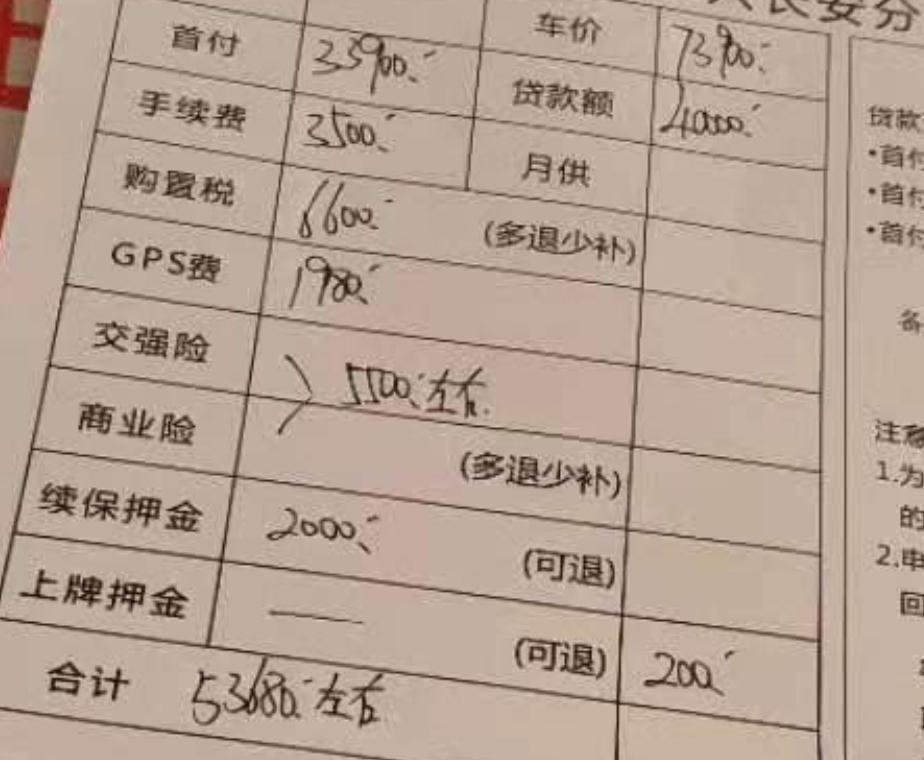 长安分
首付 33900. 车价 73900.
手续费 3500. 贷款额 40000.
购置税 6600. (多退少补) 月供
GPS费 1980.
交强险 5500.左右.
商业险 (多退少补)
续保押金 2000. (可退)
上牌押金 — (可退) 200.
合计 53680.左右
贷款
·首付
·首付
·首付
备
注意
1.为
的
2.申
回